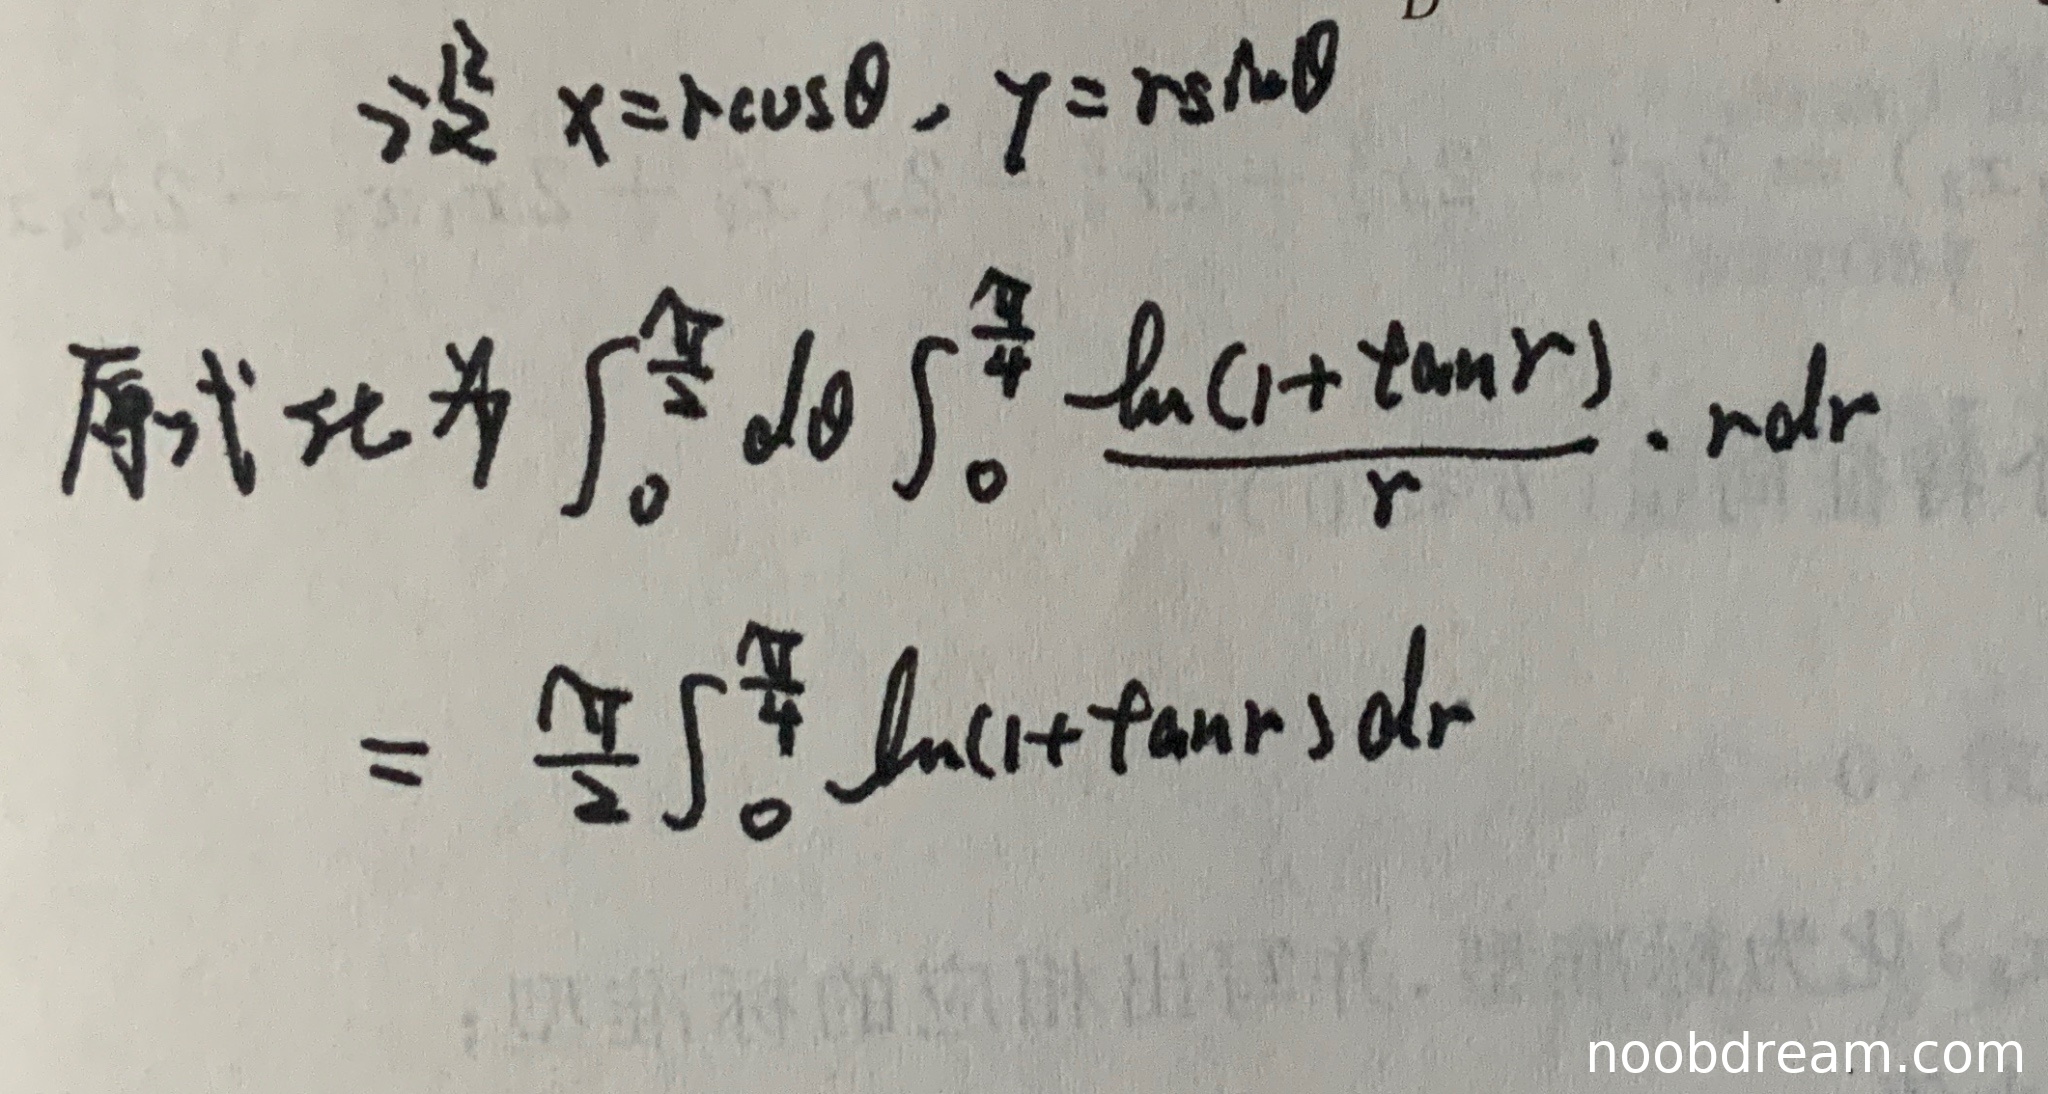 设 x=rcosθ, y=rsinθ
原式化为 ∫₀^{π/2} dθ ∫₀^{π/4} \frac{ln(1+tanr)}{r} · rdr
= \frac{π}{2} ∫₀^{π/4} ln(1+tanr)dr
noobdream.com